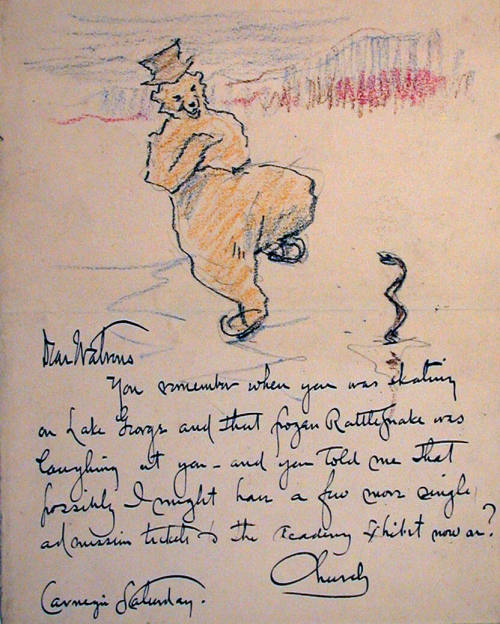 Dear Watrous
You remember when you was skating
on Lake George and that frozen Rattlesnake was
laughing at you - and you told me that
possibly I might have a few more single
admission tickets to the Academy Exhibit now on?
Church
Carnegie Saturday.